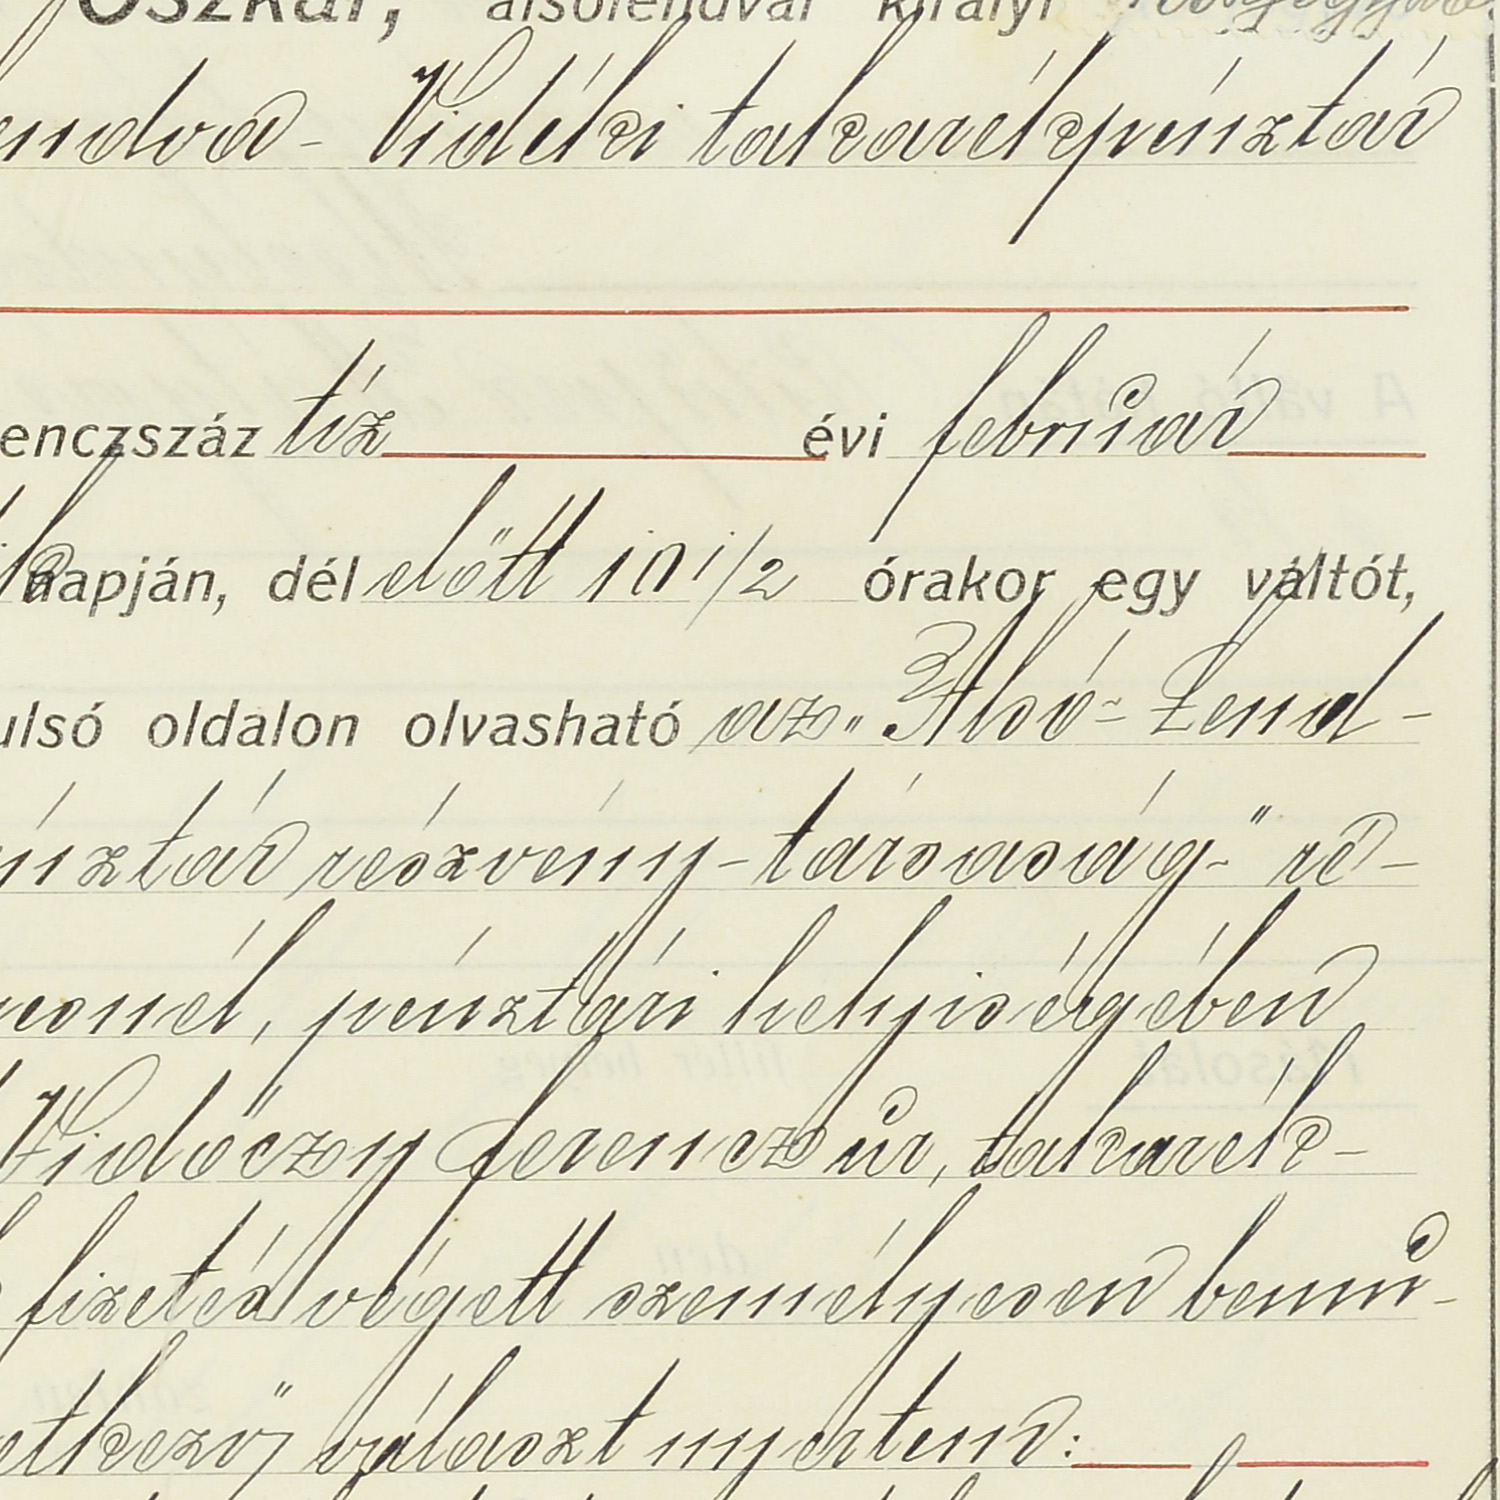 Oszkár, alsólendvai királyi közjegyző
endva - Vidéki takarékpénztár
enczszáz tíz évi február
napján, délelőtt 10 1/2 órakor egy váltót,
ulsó oldalon olvasható az „Alsó-Lend-
énztár részvény-társaság" ré-
nesnél, pénztári helyiségében
Vidőczy Ferencz úr, takarék-
fizetés végett személyesen bemu-
etkező választ nyertem: